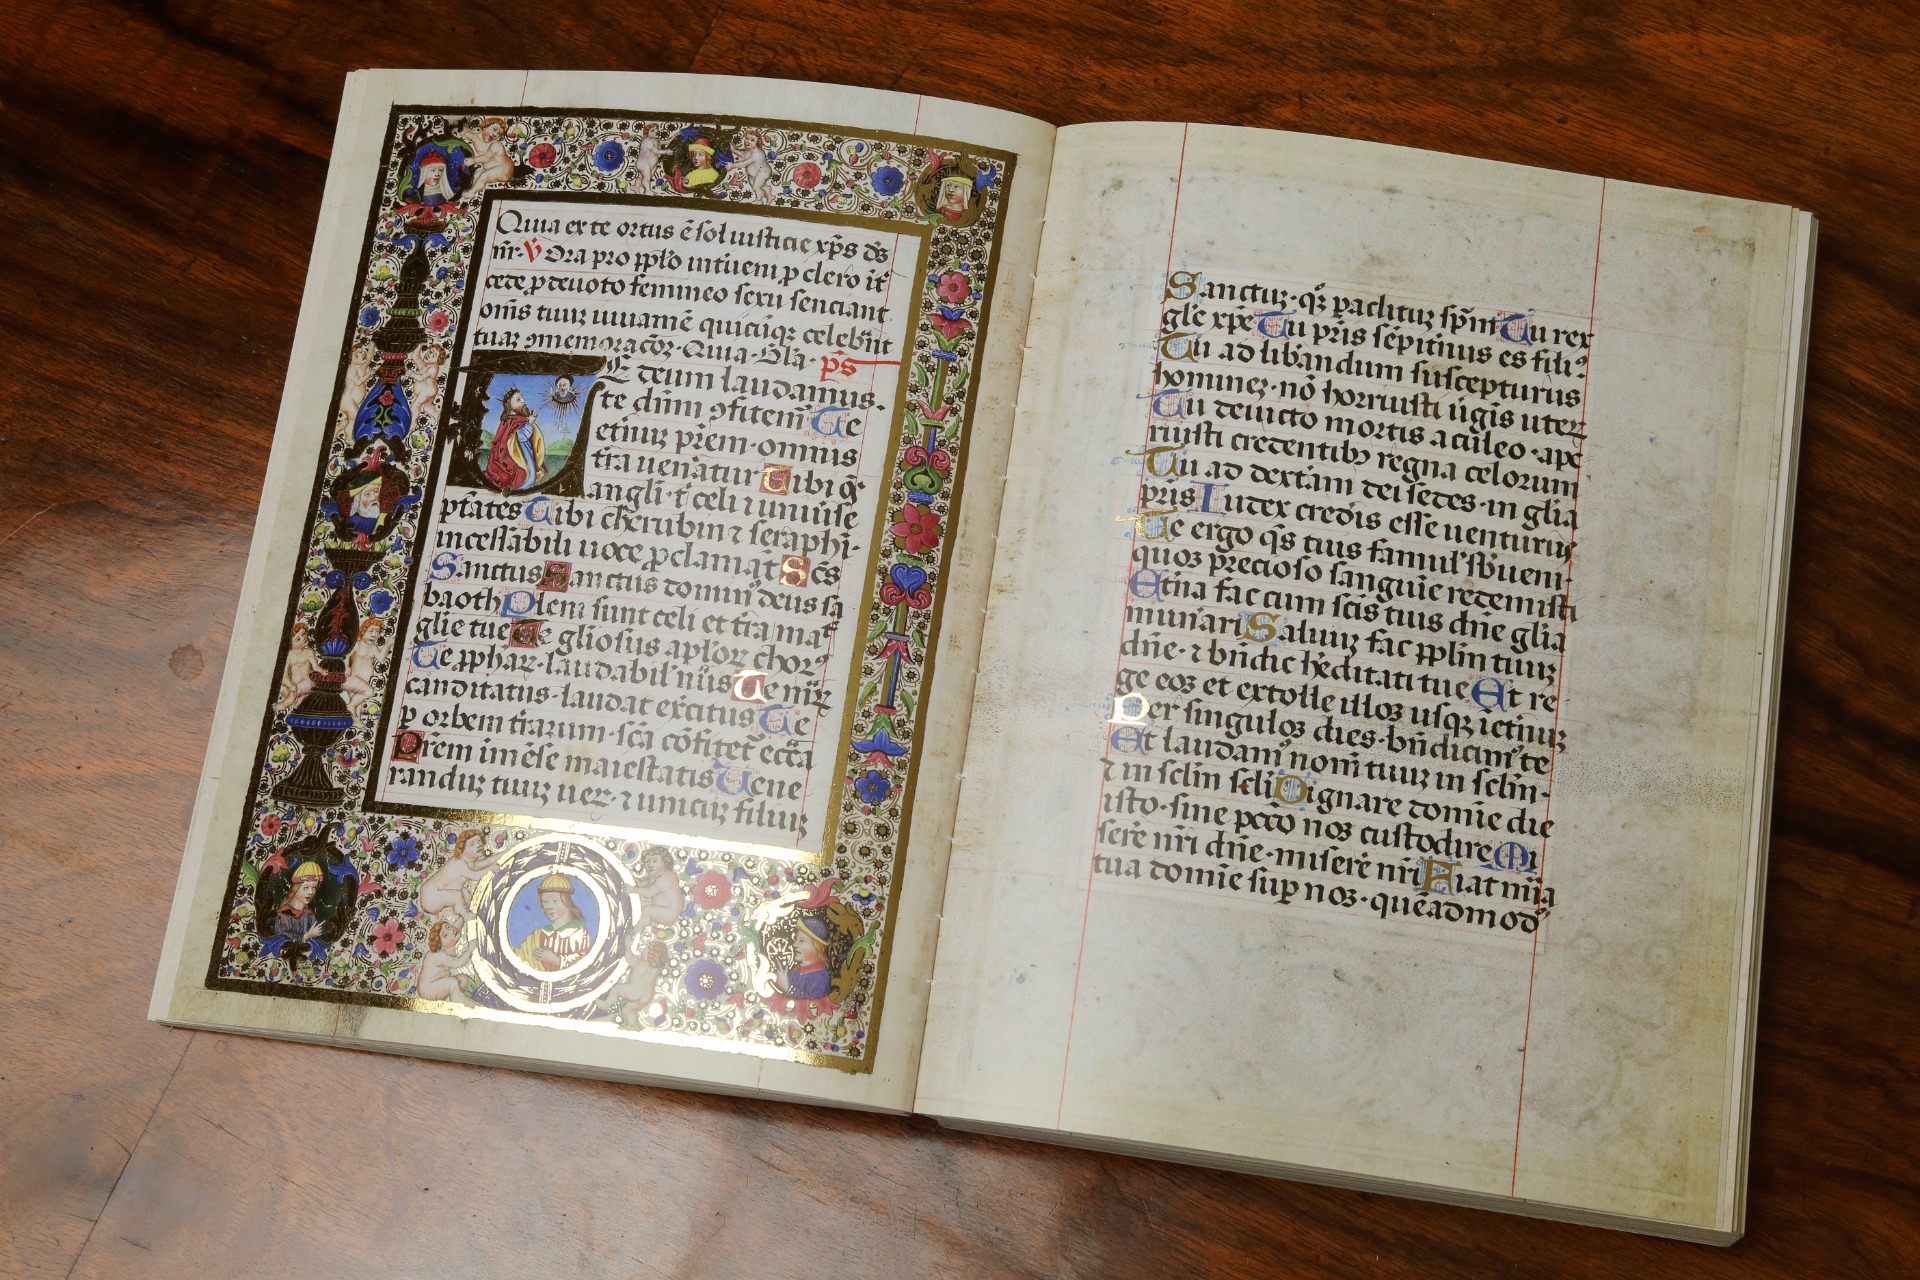 Quia ex te ortus ē sol iusticie xp̄s ds̄
nr̄· V Ora pro pplo intīueni p clero īt̄
cede p deuoto femineo sexu senciant
om̄s tuū iuuamē quicūqꝫ celebr̄nt
tuaꝫ ꝯmemoracōꝫ· Quia· Gl̄a· ps̄
TE deum laudamus·
te dn̄m ꝯfitem᷑ Te
et̄nuꝫ pr̄em· omnis
tr̄a uen̄atur Tibi oēs
angl̄i· t̄ celi ⁊ uniūse
ptātes Tibi cherubin ⁊ seraphi-
incessābili uoce ꝓclamāt Scs̄
Sanctus Sanctus domin᷑ deus sa
baoth Plem sunt celi et tr̄a mat̄
glīe tue Te gl̄iosus apl̄oꝝ chorꝰ
Te ꝓphaꝝ· laudabil᷑ nūs Te mr̄ꝝ
canditatus· laudat ex̄citus Te
p orbem tr̄arum· sc̄a cōfitet᷑ ecc̄a
Prem īmēse maiestatis Uene
randuꝫ tuuꝫ ueꝝ· ⁊ unicuꝫ filiuꝫ
Sanctuꝫ· qꝫ paclituꝫ sp̄m Tu rex
gl̄e xp̄e Tu pr̄is sēpit̄nus es filiꝰ
Tu ad lib̄andum suscepturus
homineꝫ· nō horruisti ūgis uterꝫ
Tu deuicto mortis aculeo· ape
ruisti credentibꝫ regna celorum
Tu ad dext̄am dei sedes· in glīa
pr̄is Iudex crederis esse uenturus
Te ergo qs̄ tuis famul᷑ sb̄ueni·
quos precioso sanguīe redemisti
Et̄na fac cum scīs tuis dn̄e glīa
mun᷑ari Saluuꝫ fac pplm̄ tuuꝫ
dn̄e· ⁊ bn̄dic h̄editati tue Et re
ge eos et extolle illos usqꝫ īet̄nuꝫ
Per singulos dies· bn̄dicim᷑ te
Et laudam᷑ nom̄ tuuꝫ in scl̄m·
⁊ in scl̄m scl̄i Dignare domīe die
isto· sine pccō nos custodire Mi
ser̄e nr̄i dn̄e· miser̄e nr̄i Fiat mīa
tua domīe sup nos· quēadmod᷑